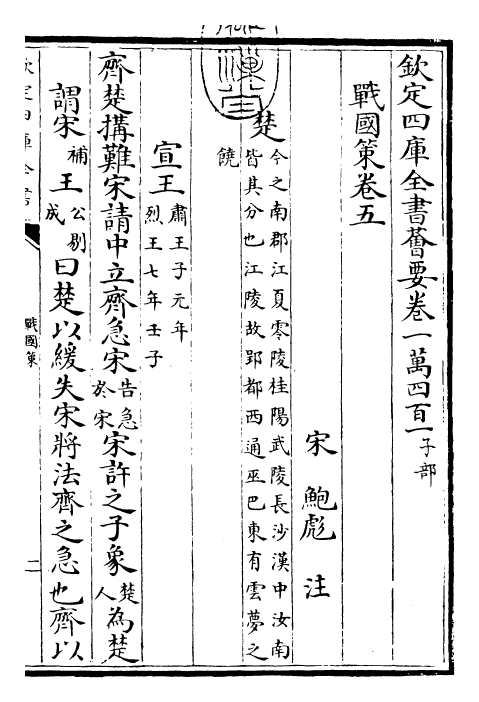 欽定四庫全書薈要卷一萬四百一子部
戰國策卷五
宋 鮑彪 注
楚今之南郡江夏零陵桂陽武陵長沙漢中汝南
皆其分也江陵故郢都西通巫巴東有雲夢之
饒
宣王肅王子元年
烈王七年壬子
齊楚搆難宋請中立齊急宋告急
於宋宋許之子象楚
人為楚
謂宋補王公剔
成曰楚以緩失宋將法齊之急也齊以
欽定四庫全書
戰國策
二